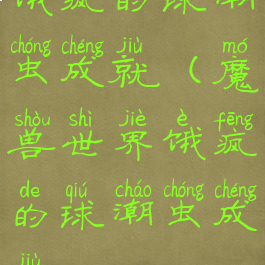 饿疯的球潮
chóng chéng jiù mó
虫成就（魔
shòu shì jiè è fēng
兽世界饿疯
de qiú cháo chóng chéng
的球潮虫成
jiù